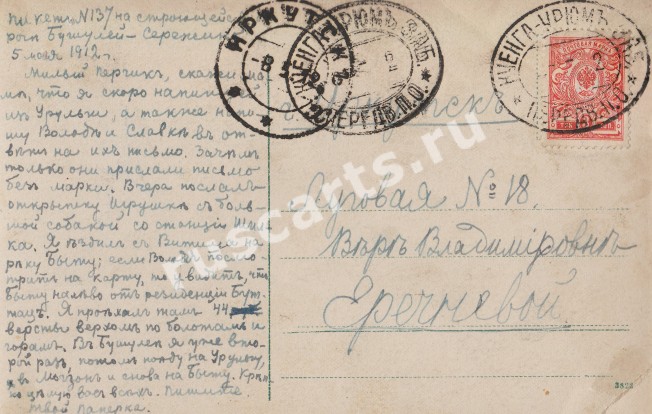 Пикетъ №137 на строющейся
Бушулей-
5 1912 г.
Милый скажи ма-
мѣ, что я скоро напишу ей
изъ Урульги, а также напи-
шу Володѣ и Славкѣ въ от-
вѣтъ на ихъ письмо. Зачѣмъ
только они прислали письмо
безъ марки. Вчера послалъ
открытку Ирушкѣ съ боль-
шой собакой со станціи Шил-
ка. Я ѣздилъ съ на
рѣку если Володя посмо-
тритъ на карту, то увидитъ, что
налѣво отъ резиденціи
Я проѣхалъ тамъ 44
версты верхомъ по болотамъ и
горамъ. Въ Бушулеѣ я уже вто-
рой разъ, потомъ поѣду на Урульгу,
въ Могзонъ и снова на Крѣп-
ко цѣлую васъ всѣхъ. Пишите.
Твой папочка.
ИРКУТСКЪ
КУЕНГА-УРЮМЪ ЗАБ.
КУЕНГА-УРЮМЪ
г. Иркутскъ
Луговая № 18.
Вѣрѣ Владиміровнѣ
Еречневой
3822
ruscarts.ru